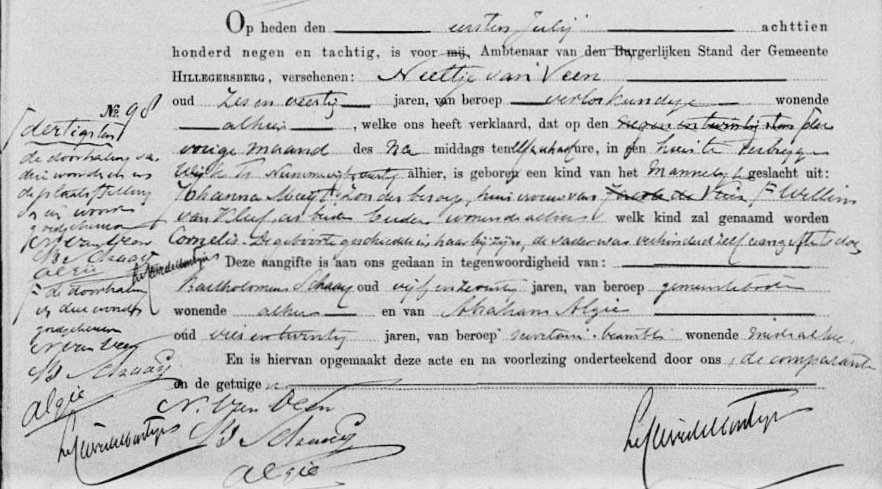 Op heden den eersten Julij achttien
honderd negen en tachtig, is voor mij, Ambtenaar van den Burgerlijken Stand der Gemeente
HILLEGERSBERG, verschenen: Neeltje van Veen
oud zes en veertig jaren, van beroep verloskundige wonende
alhier, welke ons heeft verklaard, dat op den negen en twintigsten der
vorige maand des na middags ten elf uure, in een huis te Terbregge
Wijk Nummer alhier, is geboren een kind van het Mannelijk geslacht uit:
Johanna zonder beroep, huisvrouw van Willem
van beiden wonende alhier welk kind zal genaamd worden
Cornelis. De geboorte geschiedde in haar bijzijn, de vader was verhinderd zelf aangifte te doen
Deze aangifte is aan ons gedaan in tegenwoordigheid van:
Bartholomeus Schaay oud vijf en zeventig jaren, van beroep gemeentebode
wonende alhier en van Abraham Algie
oud en twintig jaren, van beroep secretarie beambte wonende mede alhier.
En is hiervan opgemaakt deze acte en na voorlezing onderteekend door ons, de comparante
en de getuigen
N. van Veen
B Schaay
Algie
No. 98
dertigsten
de doorhaling van
drie woorden en
de plaatsstelling
van een woord
goedgekeurd
N van Veen
B Schaay
Algie
de doorhaling
van drie woorden
goedgekeurd
N van Veen
B Schaay
Algie